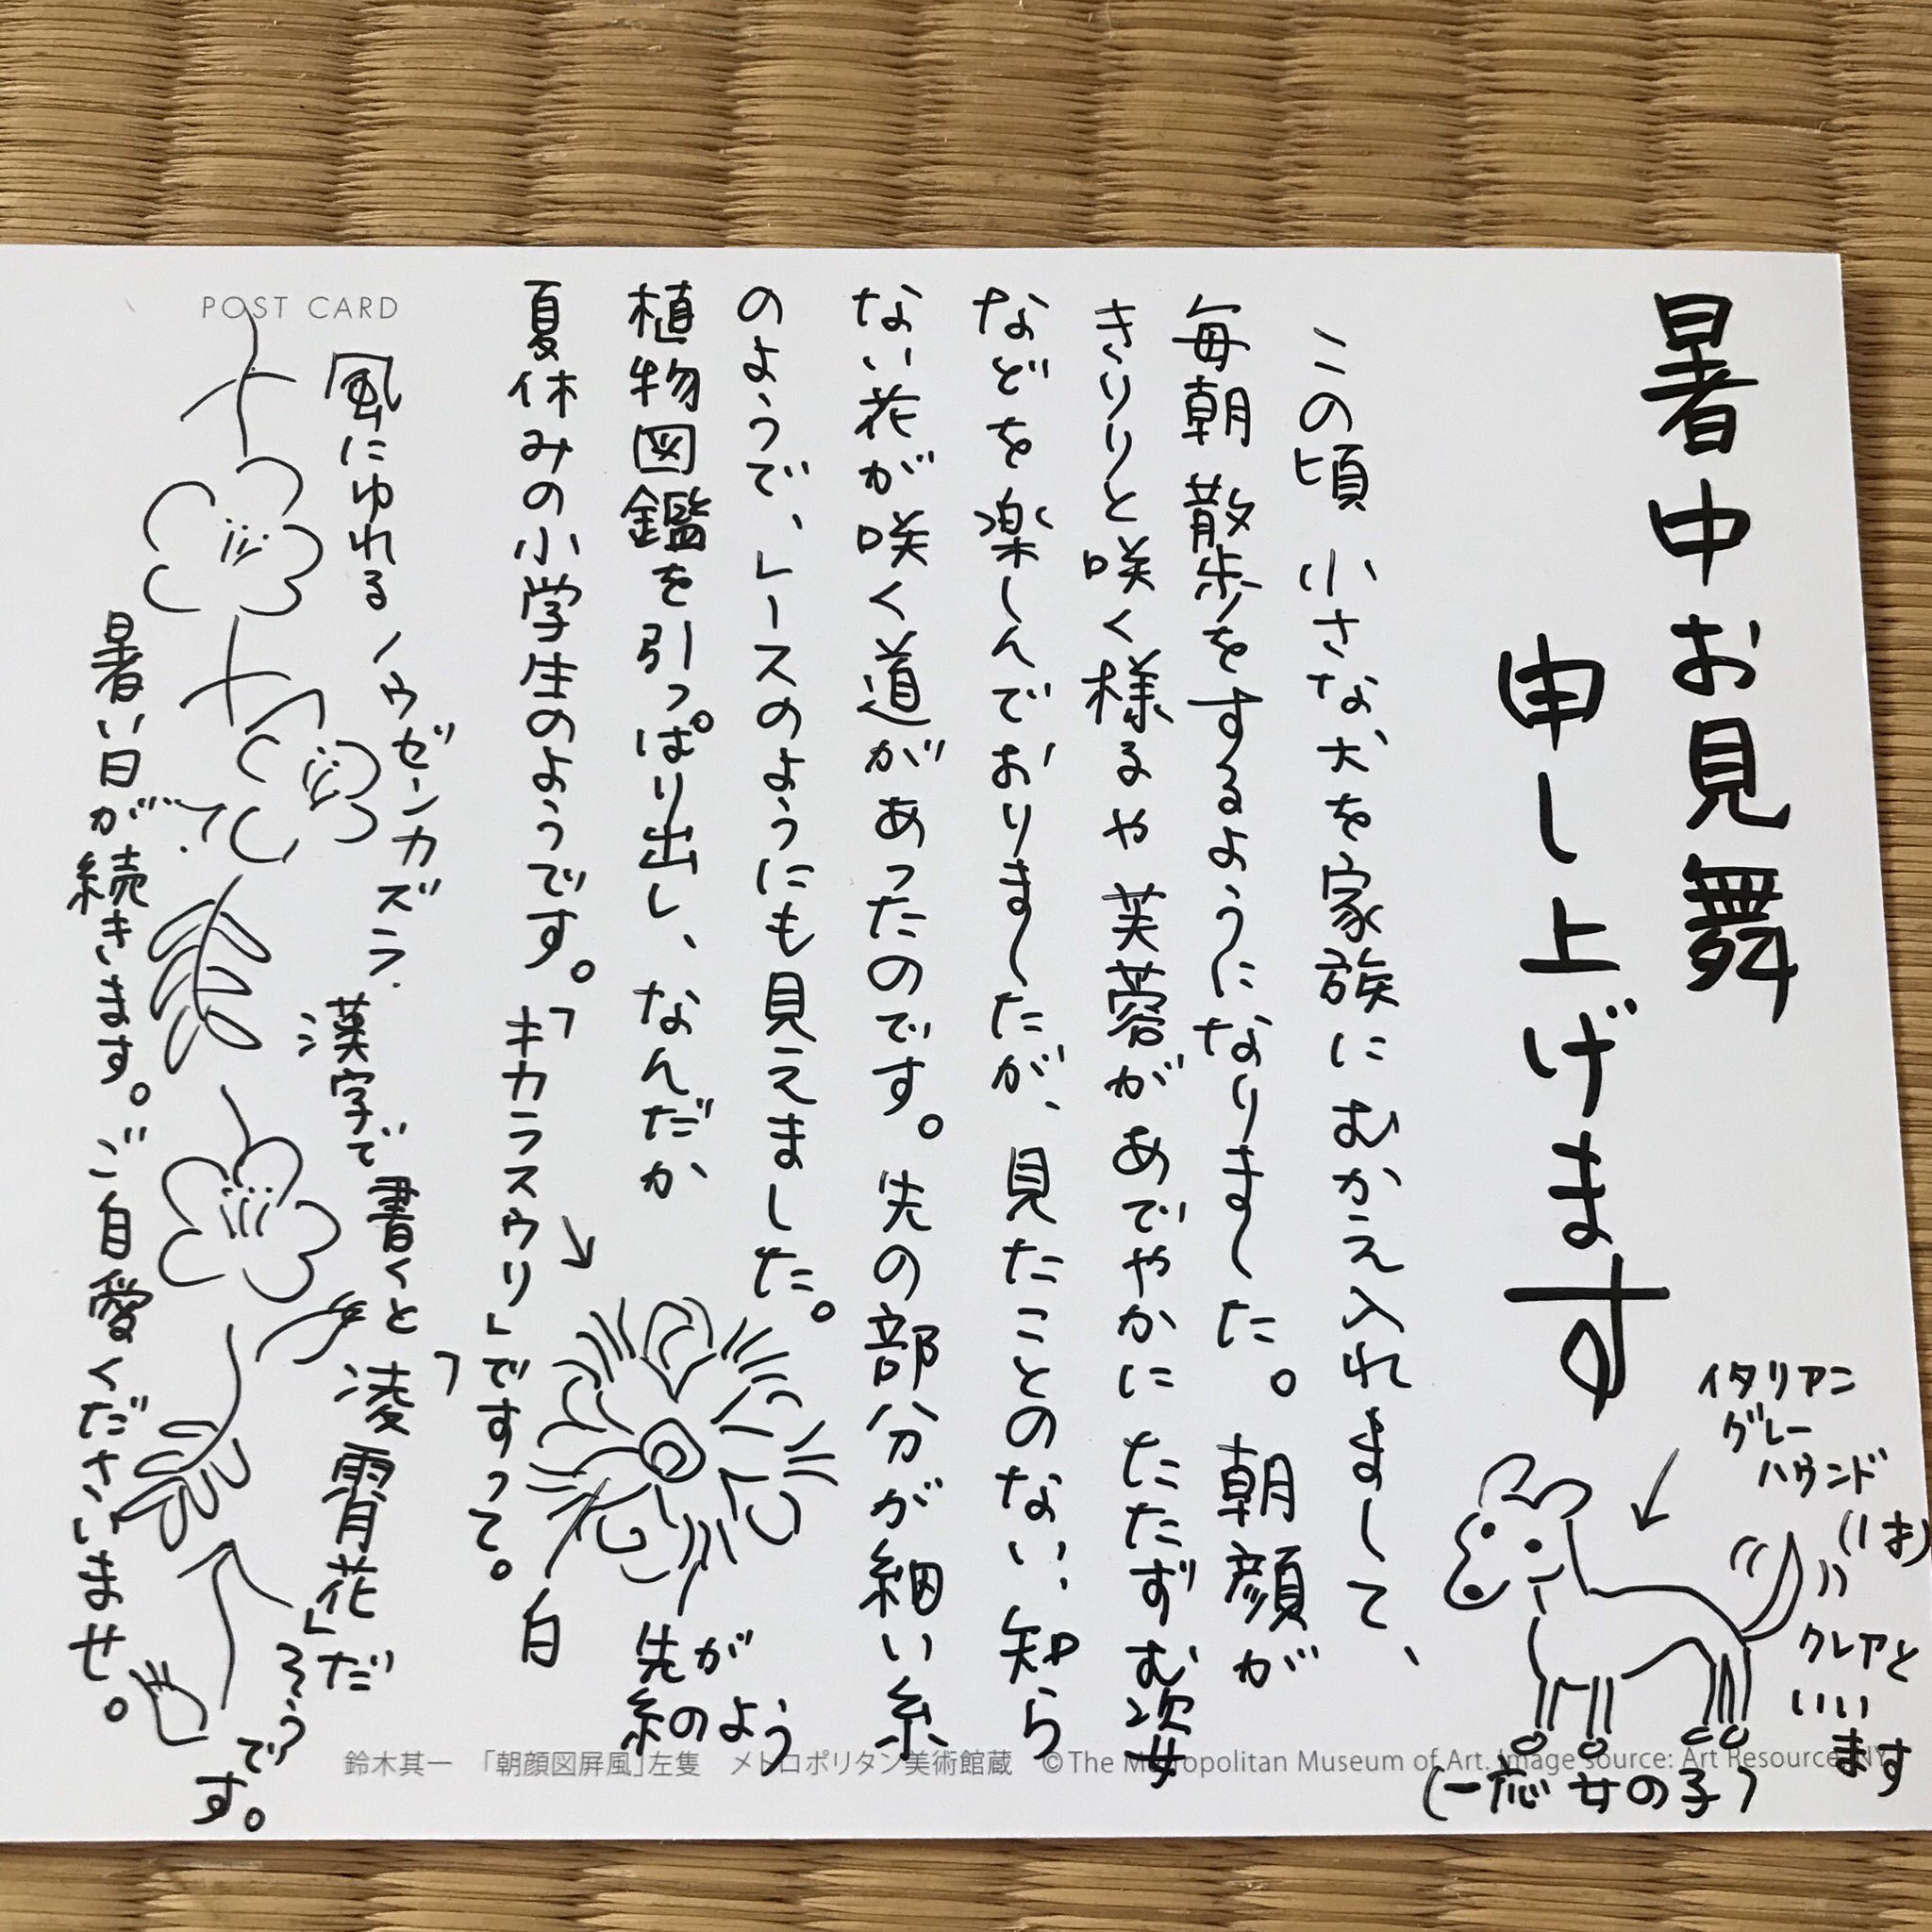 暑中お見舞
申し上げます
イタリアン
グレー
ハウンド
クレアと
いい
ます
(一応女の子)
この頃 小さな犬を家族にむかえ入れまして、
毎朝散歩をするようになりました。朝顔が
きりりと咲く様るや芙蓉があでやかにたたずむ姿
などを楽しんでおりましたが、見たことのない、知ら
ない花が咲く道があったのです。先の部分が細い糸
のようで、レースのようにも見えました。
植物図鑑を引っぱり出し、なんだか
夏休みの小学生のようです。
「キカラスウリ」ですって。
白
先が
糸のよう
風にゆれるノウゼンカズラ.
漢字で書くと
「凌霄花」だ
そうで
す。
暑い日が続きます。ご自愛くださいませ。
POST CARD
鈴木其一 「朝顔図屏風」左隻 メトロポリタン美術館蔵 ©The Metropolitan Museum of Art. Image source: Art Resource, NY